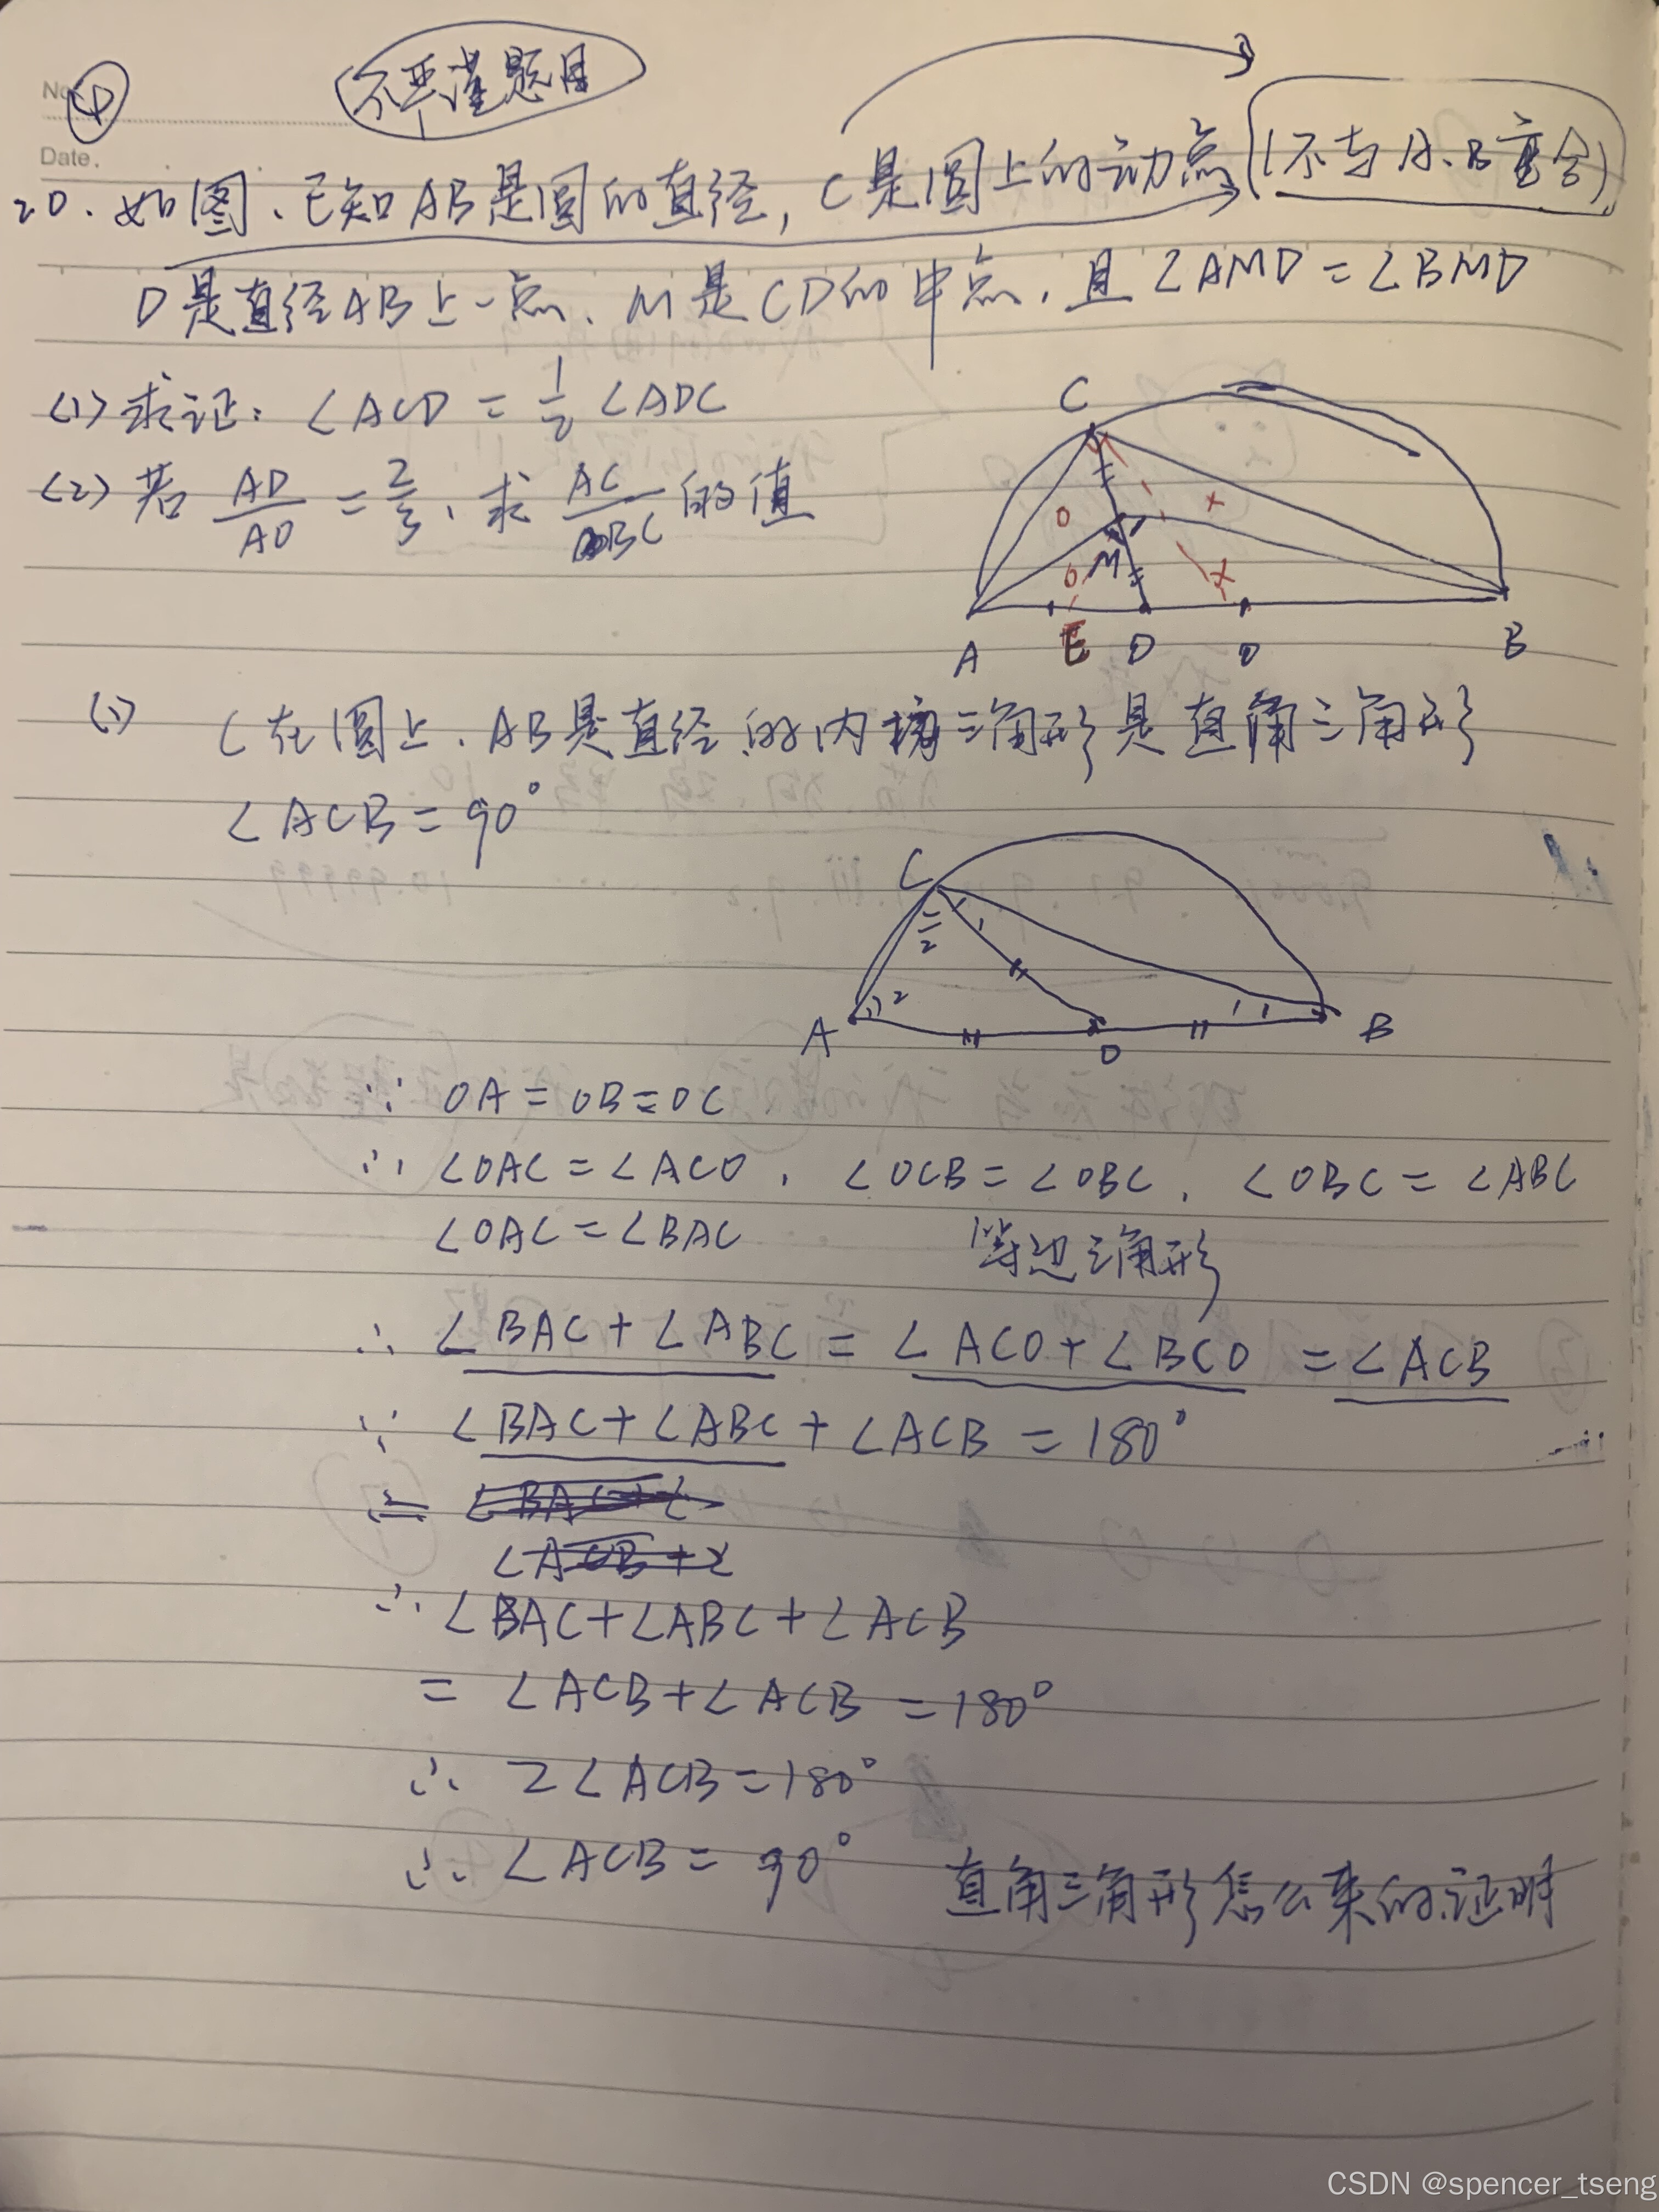 No. 4
不严谨题目
Date.
20. 如图、已知AB是圆的直径, C是圆上的动点(不与A、B重合)
D是直径AB上一点、M是CD的中点、且∠AMD=∠BMD
(1) 求证: ∠ACD = 1/2 ∠ADC
(2) 若 AD/AO = 2/3、求 AC/BC 的值
C
O
X
M
O
X
A E D O B
(1) C在圆上、AB是直径的内接三角形是直角三角形
∠ACB = 90°
C
2 1
2 1
A O B
∵ OA=OB=OC
∴ ∠OAC=∠ACO、∠OCB=∠OBC、∠OBC=∠ABC
∠OAC=∠BAC 等边三角形
∴ ∠BAC+∠ABC = ∠ACO+∠BCO = ∠ACB
∵ ∠BAC+∠ABC+∠ACB = 180°
∠BAC+∠
∠ACB+∠
∴ ∠BAC+∠ABC+∠ACB
= ∠ACB+∠ACB = 180°
∴ 2∠ACB=180°
∴ ∠ACB = 90° 直角三角形怎么来的证明
CSDN @spencer_tseng